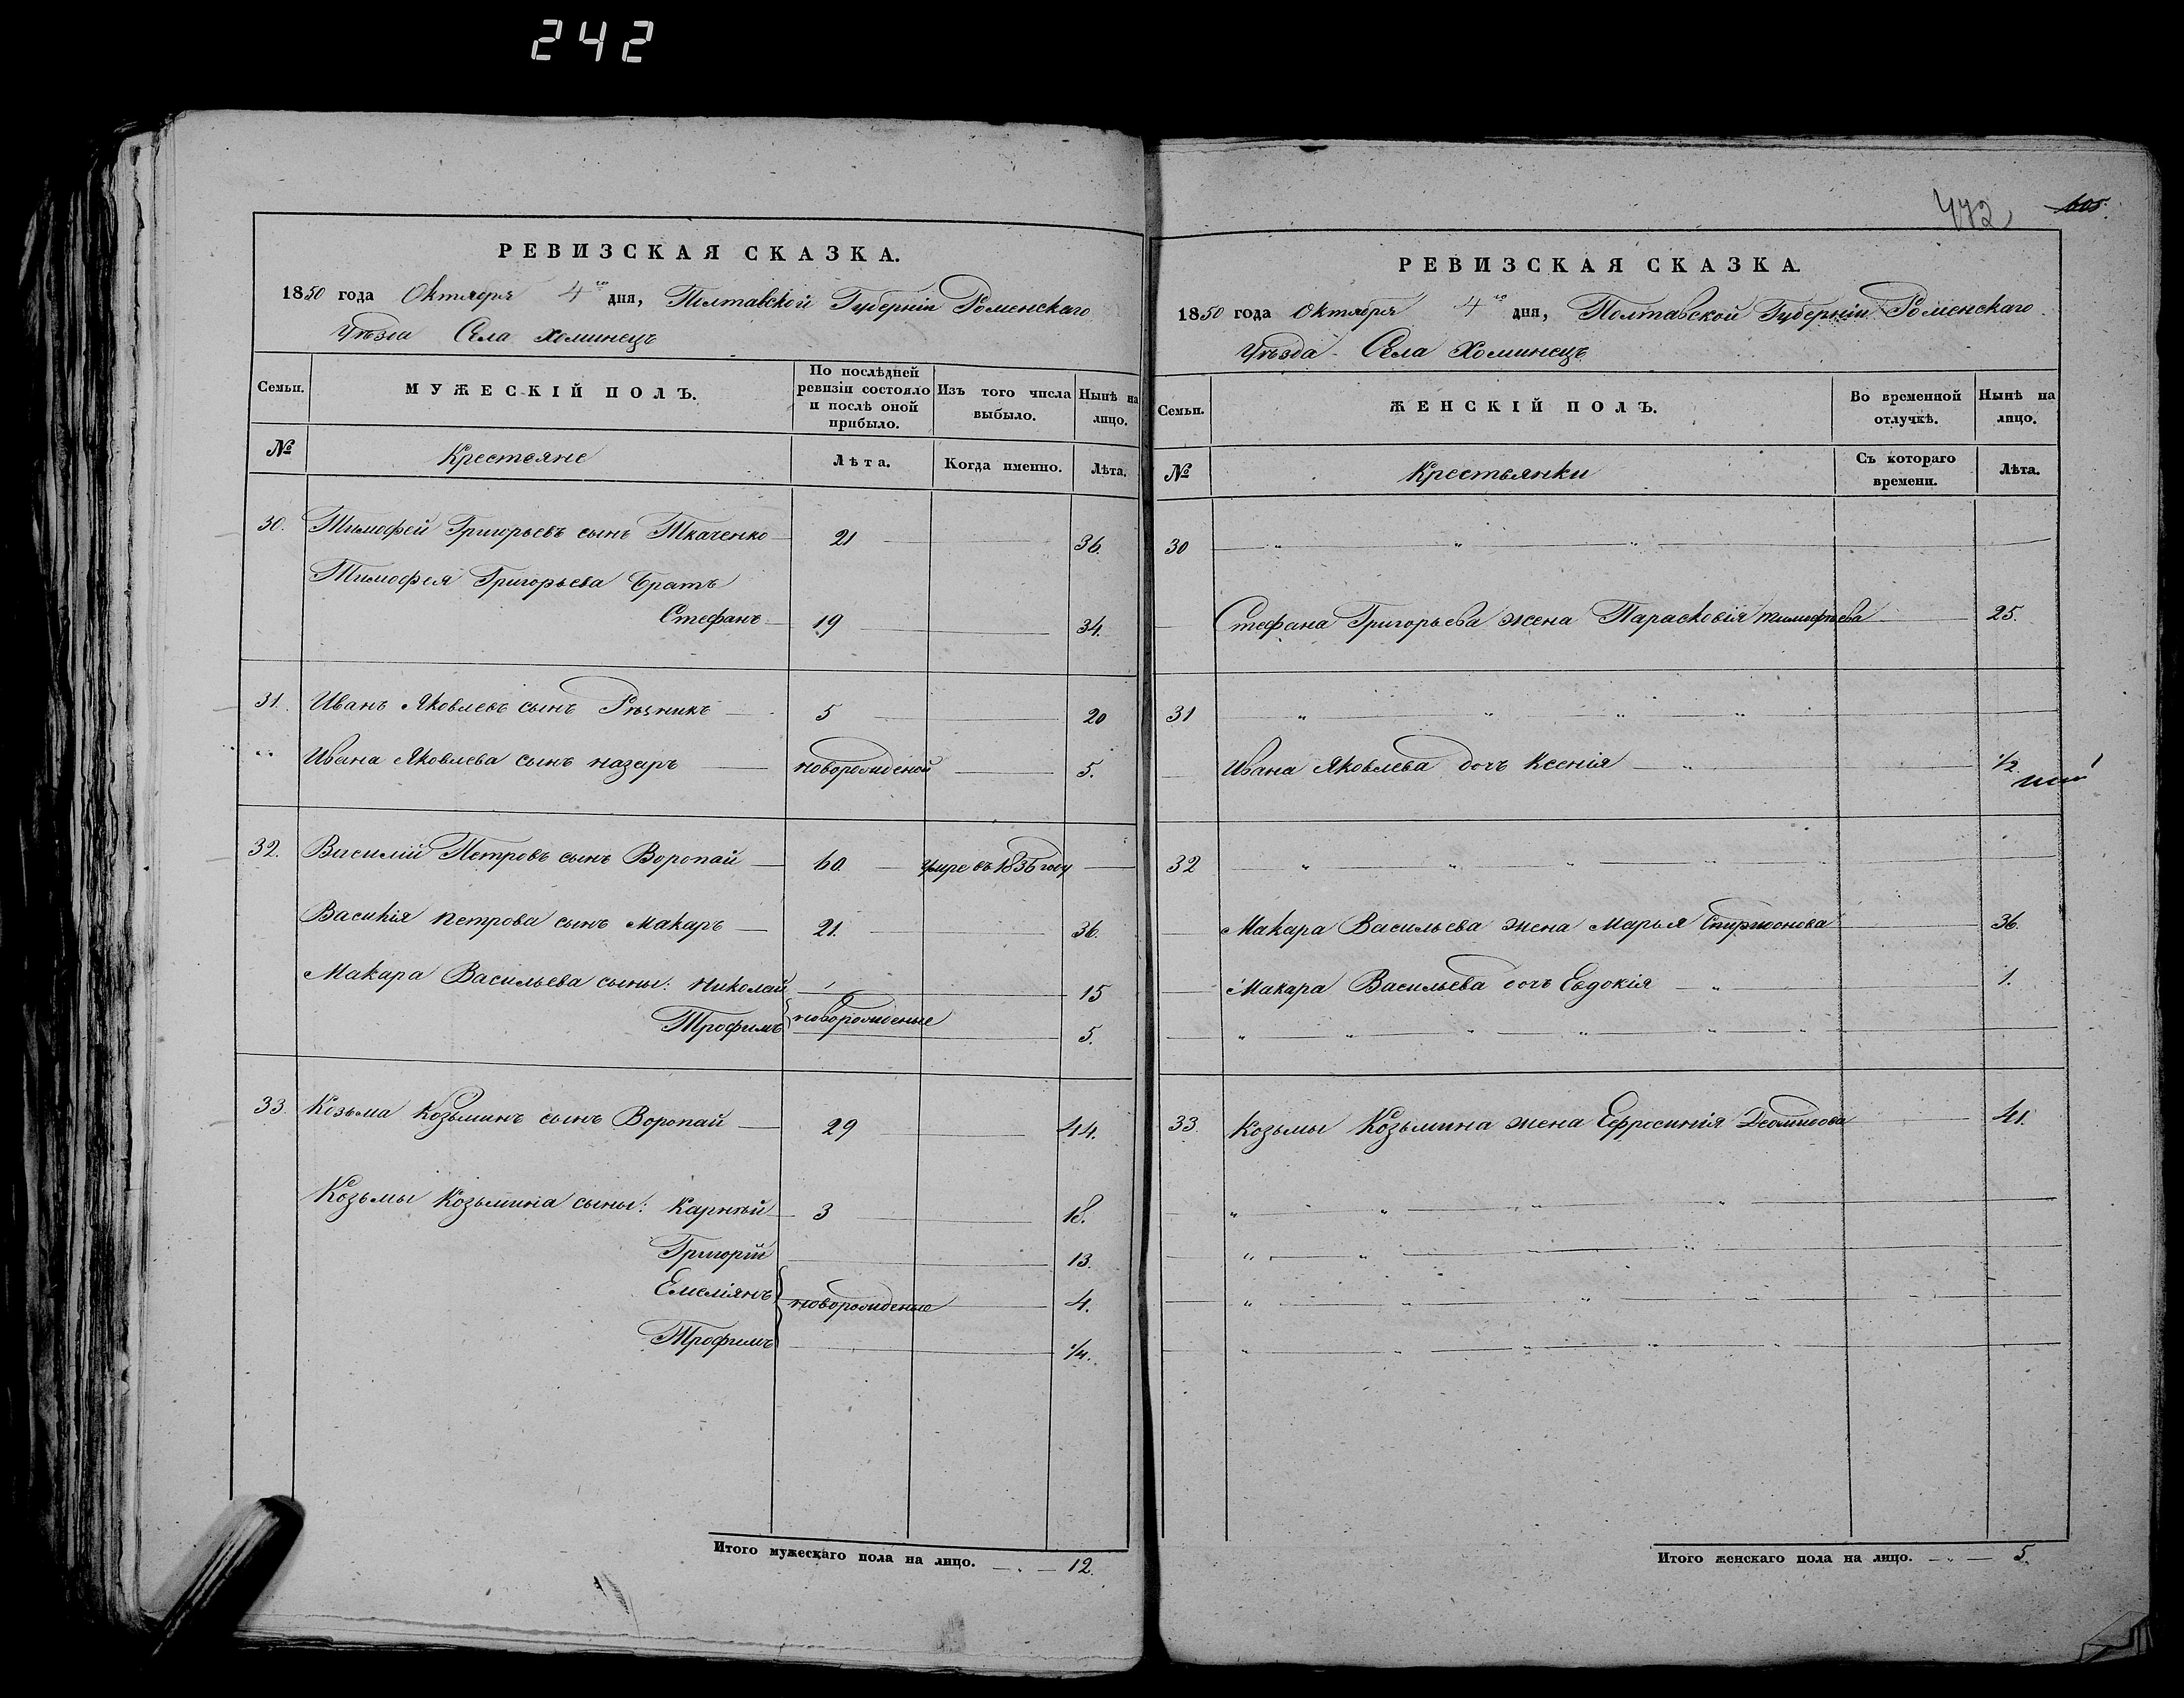 242
РЕВИЗСКАЯ СКАЗКА.
1850 года Октября 4го дня, Полтавской Губерніи Роменскаго
Уѣзда Села Хоминецъ
Семьи.
МУЖЕСКІЙ ПОЛЪ.
По послѣдней ревизіи состояло и послѣ оной прибыло.
Изъ того числа выбыло.
Нынѣ на лицо.
№
Крестьяне
Лѣта.
Когда именно.
Лѣта.
30. Тимофей Григорьевъ сынъ Ткаченко 21 36.
Тимофея Григорьева Братъ
Стефанъ 19 34.
31. Иванъ Яковлевъ сынъ Рѣзникъ 5 20
Ивана Яковлева сынъ назаръ новорожденой 5.
32. Василій Петровъ сынъ Воропай 60. Умре въ 1836 году
Василія петрова сынъ Макаръ 21. 36.
Макара Васильева сыны: Николай 15
Трофимъ новорожденые 5.
33. Козьма Козьминъ сынъ Воропай 29 44.
Козьмы Козьмина сыны: Карнѣй 3 18.
Григорій 13.
Емеліянъ новорожденые 4.
Трофимъ 1/4.
Итого мужескаго пола на лицо. 12.
472 605.
РЕВИЗСКАЯ СКАЗКА.
1850 года Октября 4го дня, Полтавской Губерніи Роменскаго
Уѣзда Села Хоминецъ
Семьи.
ЖЕНСКІЙ ПОЛЪ.
Во временной отлучкѣ.
Нынѣ на лицо.
№
Крестьянки
Съ котораго времени.
Лѣта.
30
Стефана Григорьева жена Парасковія тимофѣева 25.
31
Ивана Яковлева дочъ Ксенія 1/2
32
Макара Васильева жена Марья Спиридонова 36.
Макара Васильева дочъ Евдокія 1.
33. Козьмы Козьмина жена Ефросинія 41.
Итого женскаго пола на лицо. 5.